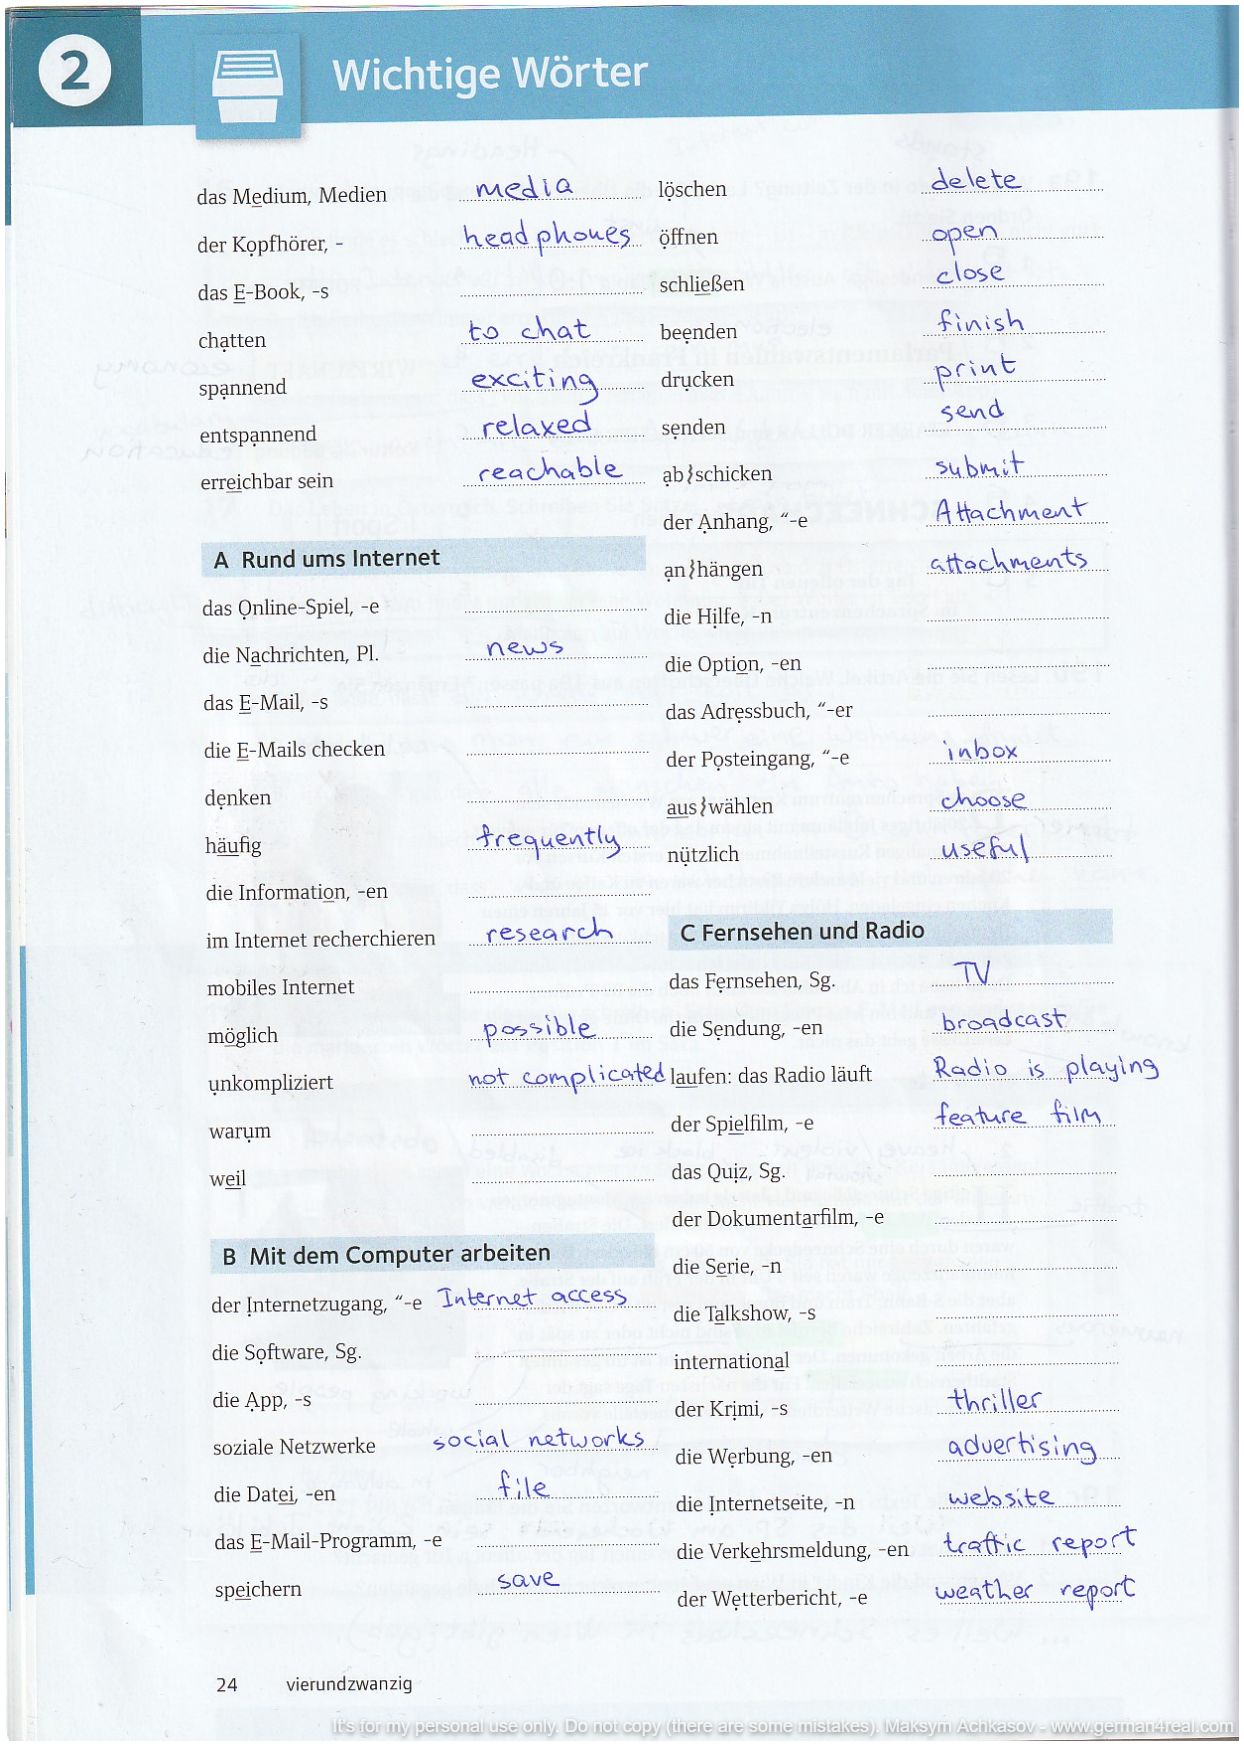 2
Wichtige Wörter
das Medium, Medien media
der Kopfhörer, - headphones
das E-Book, -s
chatten to chat
spannend exciting
entspannend relaxed
erreichbar sein reachable
A Rund ums Internet
das Online-Spiel, -e
die Nachrichten, Pl. news
das E-Mail, -s
die E-Mails checken
denken
häufig frequently
die Information, -en
im Internet recherchieren research
mobiles Internet
möglich possible
unkompliziert not complicated
warum
weil
B Mit dem Computer arbeiten
der Internetzugang, “-e Internet access
die Software, Sg.
die App, -s
soziale Netzwerke social networks
die Datei, -en file
das E-Mail-Programm, -e
speichern save
löschen delete
öffnen open
schließen close
beenden finish
drucken print
senden send
ab}schicken submit
der Anhang, “-e Attachment
an}hängen attachments
die Hilfe, -n
die Option, -en
das Adressbuch, “-er
der Posteingang, “-e inbox
aus}wählen choose
nützlich useful
C Fernsehen und Radio
das Fernsehen, Sg. TV
die Sendung, -en broadcast
laufen: das Radio läuft Radio is playing
der Spielfilm, -e feature film
das Quiz, Sg.
der Dokumentarfilm, -e
die Serie, -n
die Talkshow, -s
international
der Krimi, -s thriller
die Werbung, -en advertising
die Internetseite, -n website
die Verkehrsmeldung, -en traffic report
der Wetterbericht, -e weather report
24 vierundzwanzig
It's for my personal use only. Do not copy (there are some mistakes). Maksym Achkasov - www.german4real.com